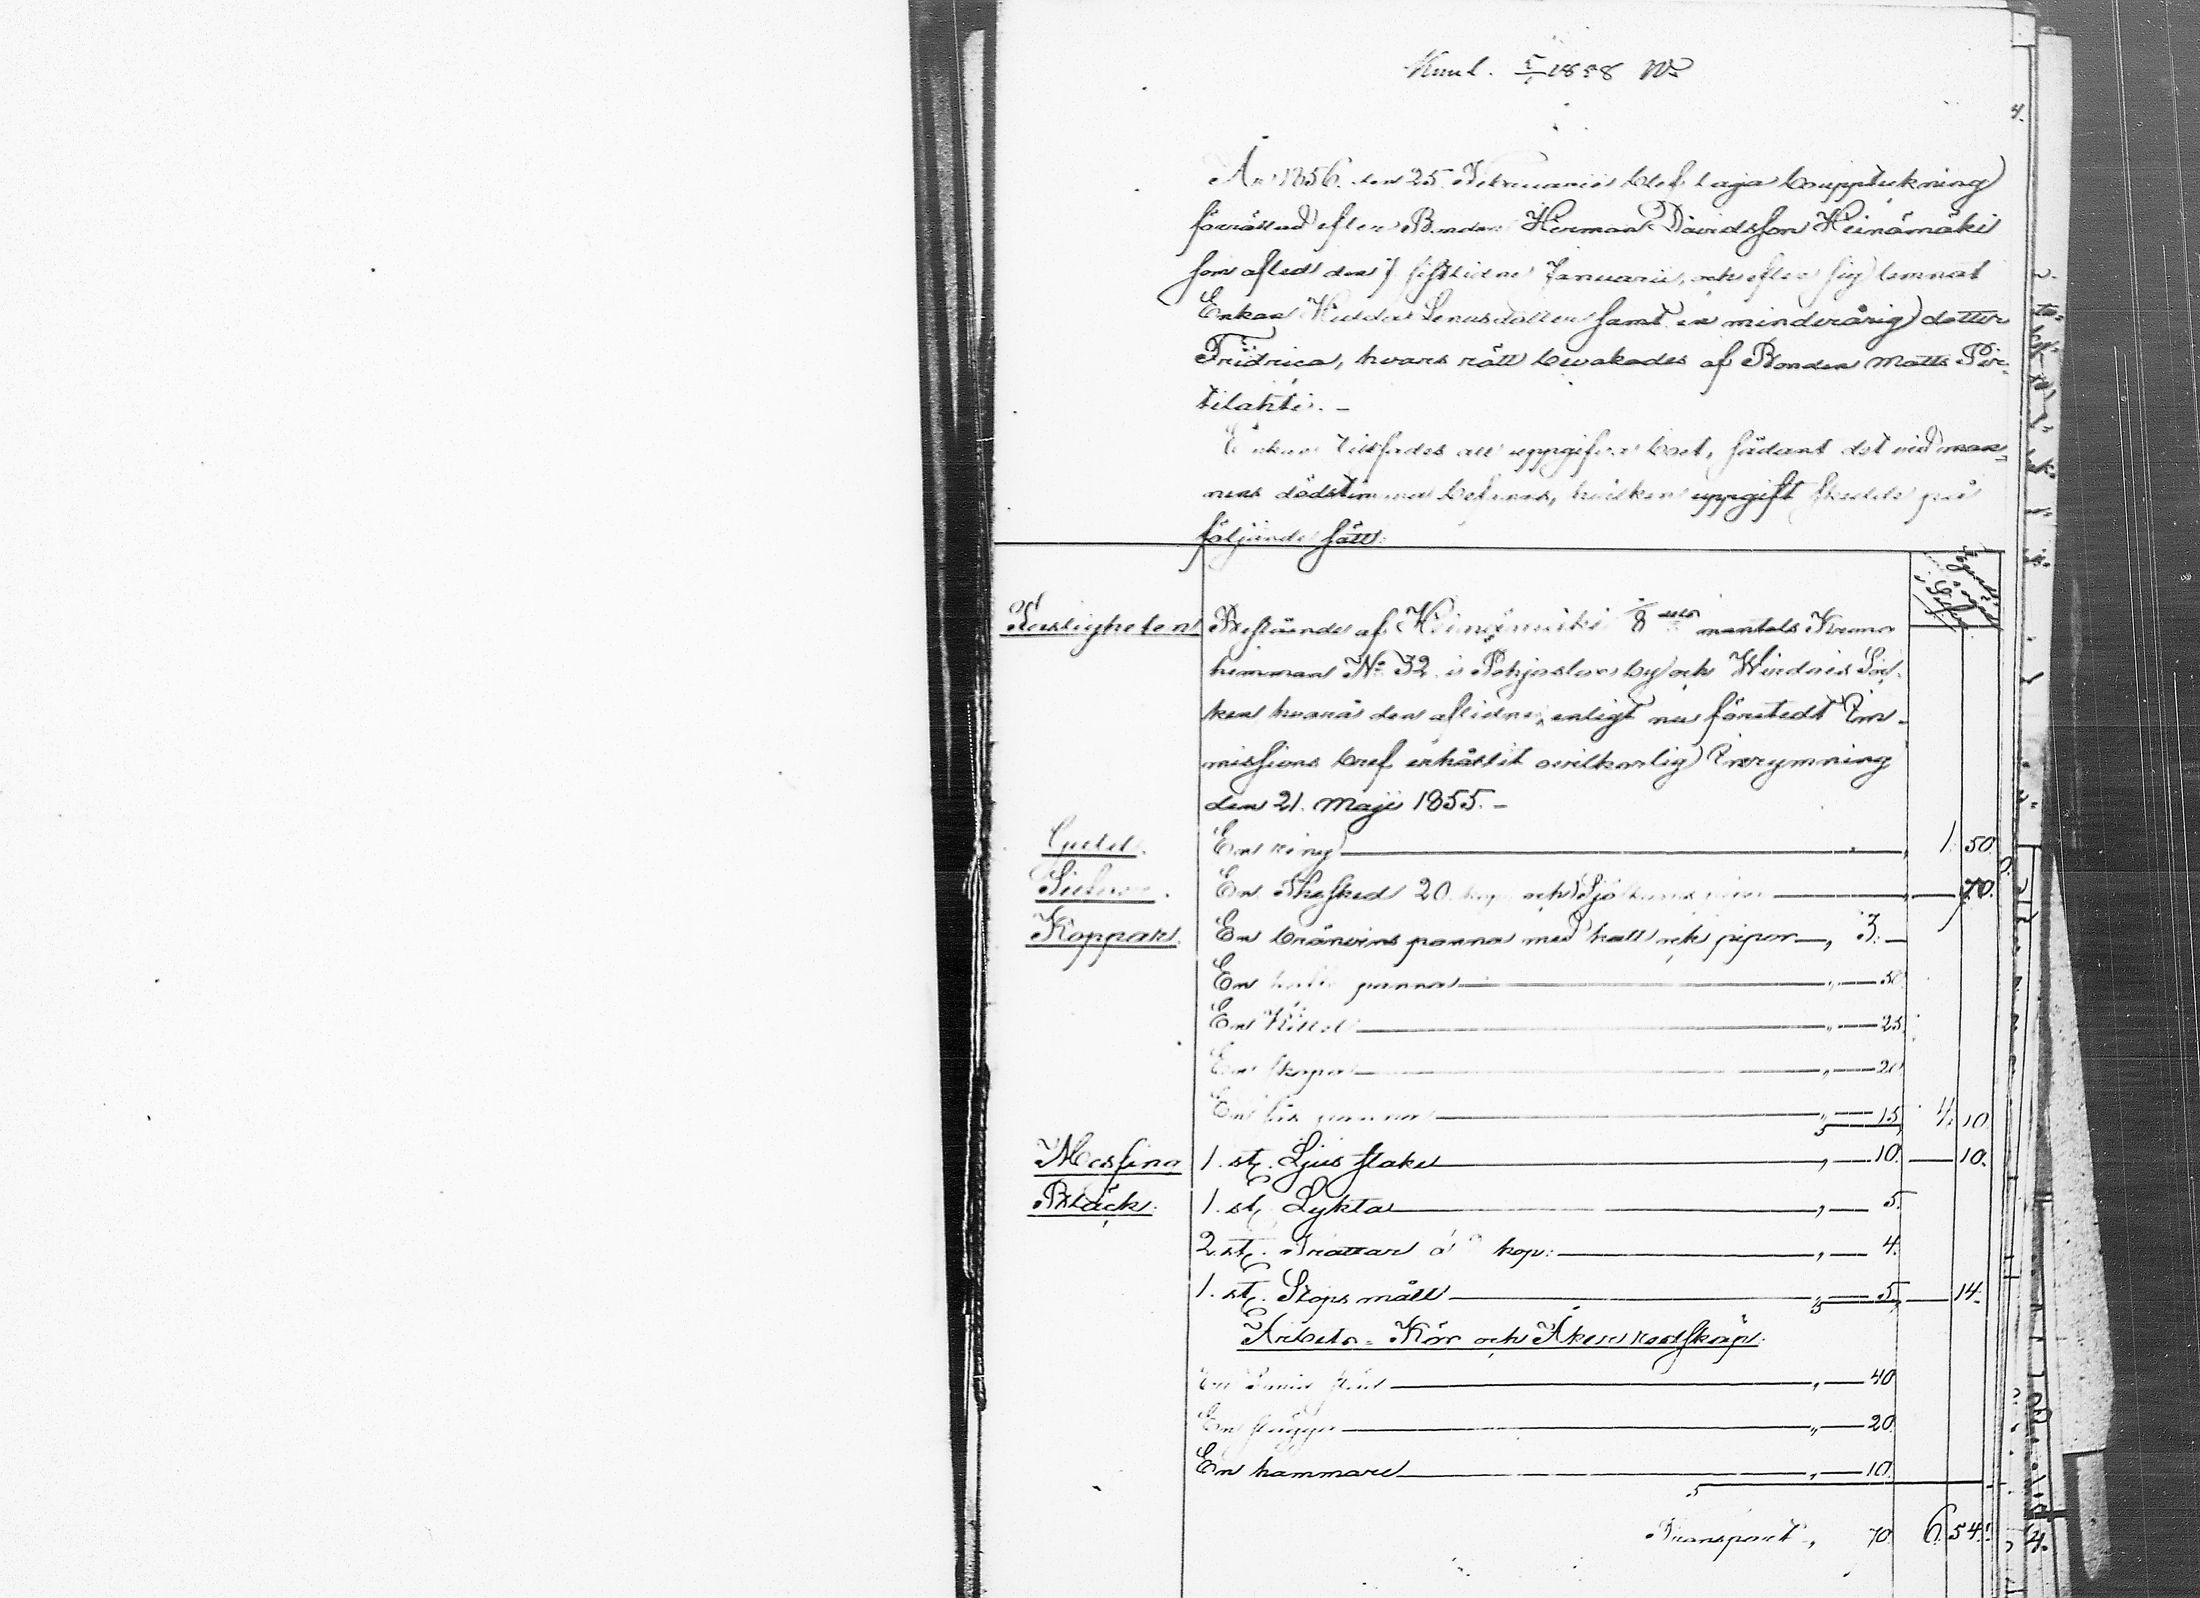 1858
År 1856. den 25. Februarii blef laga bouppteckning
förrättad efter Bonden Herman Davidsson Heinämäki
som afled den 7 sistlidne Januarii, och efter sig lemnat
Enkan Hulda Lenusdotter samt en minderårig dotter
Fridrica, hvars rätt bevakades af Bonden Matts Pir-
tilahti. -
Enkan tillsades att uppgifva boet, sådant det vid man-
nens dödstimma befanns, hvilken uppgift skedde på
följande sätt:
Fastigheten Bestående af Heinämäki 1/8 mantals Krono
hemman No 32 i Pohjaslax by och Wirdois Soc-
ken hvarå den aflidne, enligt nu företedt Im-
missions bref erhållit ovilkorlig Inrymning
den 21. Maji 1855. -
Guld. En ring 1. 50.
Silfver. En Thesked 20 kop och 70.
Koppar. En bränvins panna med hatt och pipor " 3. -
En panna " 50
En Kittel " 25.
En skopa " 20
En panna " 15 4. 10.
Messing 1. st. Ljus stake " 10. 10.
Bläck. 1. st. Lykta " 5.
2. st. Trattar à kop: " 4.
1. st. Stops mått " 5. 14.
Arbets- Kör och Åker redskap.
En städ " 40
En slägga " 20.
En hammare " 10.
Transport " 70. 6. 54.